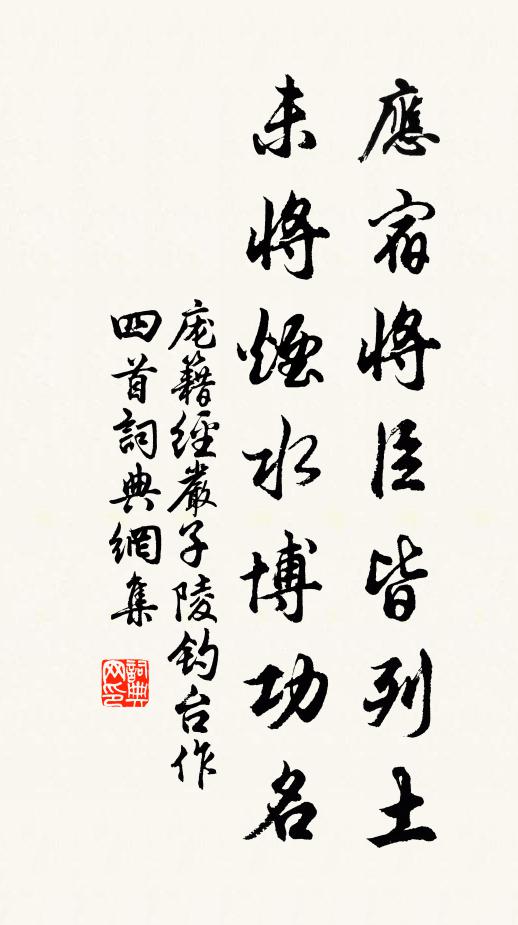 應宿將臣皆列土
未將煙水博功名
庞籍經嚴子陵釣台作
四首詞典網集
詞典网印